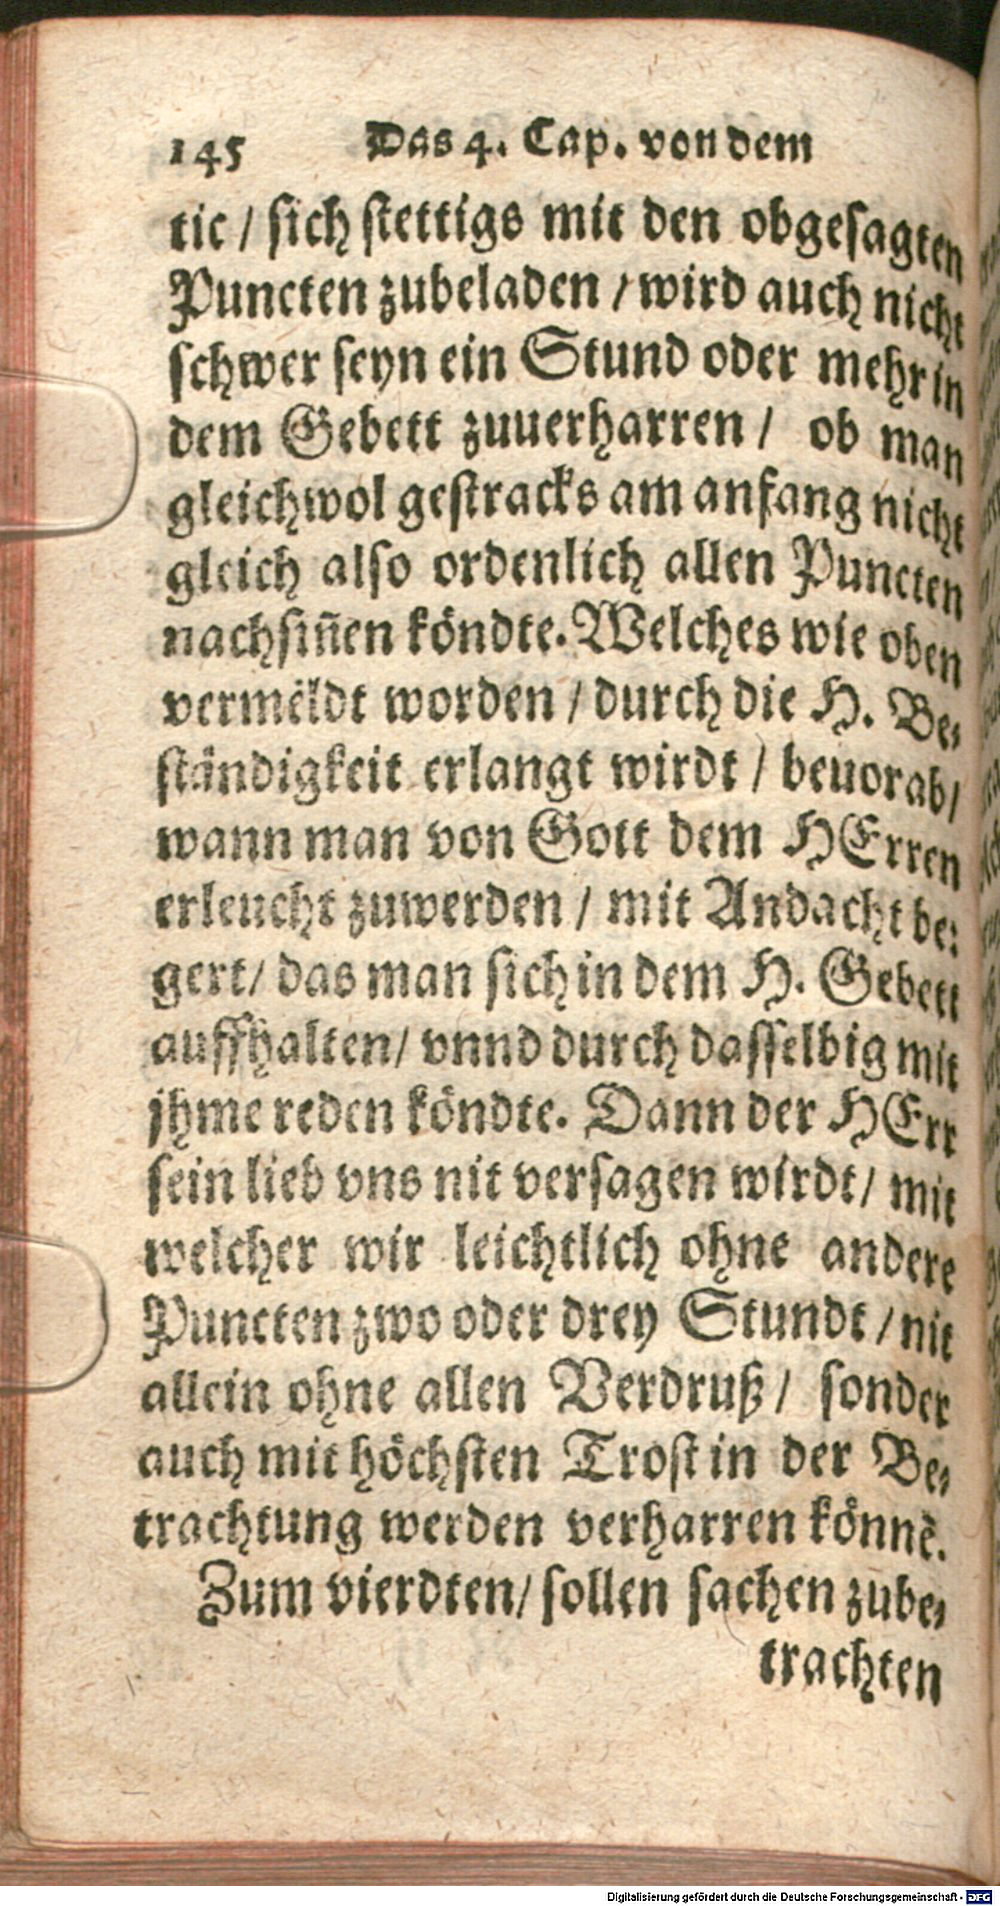 145 Das 4. Cap. von dem
tic / sich stettigs mit den obgesagten
Puncten zubeladen / wird auch nicht
schwer seyn ein Stund oder mehr in
dem Gebett zuuerharren / ob man
gleichwol gestracks am anfang nicht
gleich also ordenlich allen Puncten
nachsiñen köndte. Welches wie oben
vermeldt worden / durch die H. Be-
ständigkeit erlangt wirdt / beuorab /
wann man von Gott dem HErren
erleucht zuwerden / mit Andacht be-
gert / das man sich in dem H. Gebett
auffhalten / vnnd durch dasselbig mit
jhme reden köndte. Dann der HErr
sein lieb vns nit versagen wirdt / mit
welcher wir leichtlich ohne andere
Puncten zwo oder drey Stundt / nit
allein ohne allen Verdruß / sonder
auch mit höchsten Trost in der Be-
trachtung werden verharren könnē.
Zum vierdten / sollen sachen zube-
trachten
Digitalisierung gefördert durch die Deutsche Forschungsgemeinschaft - DFG